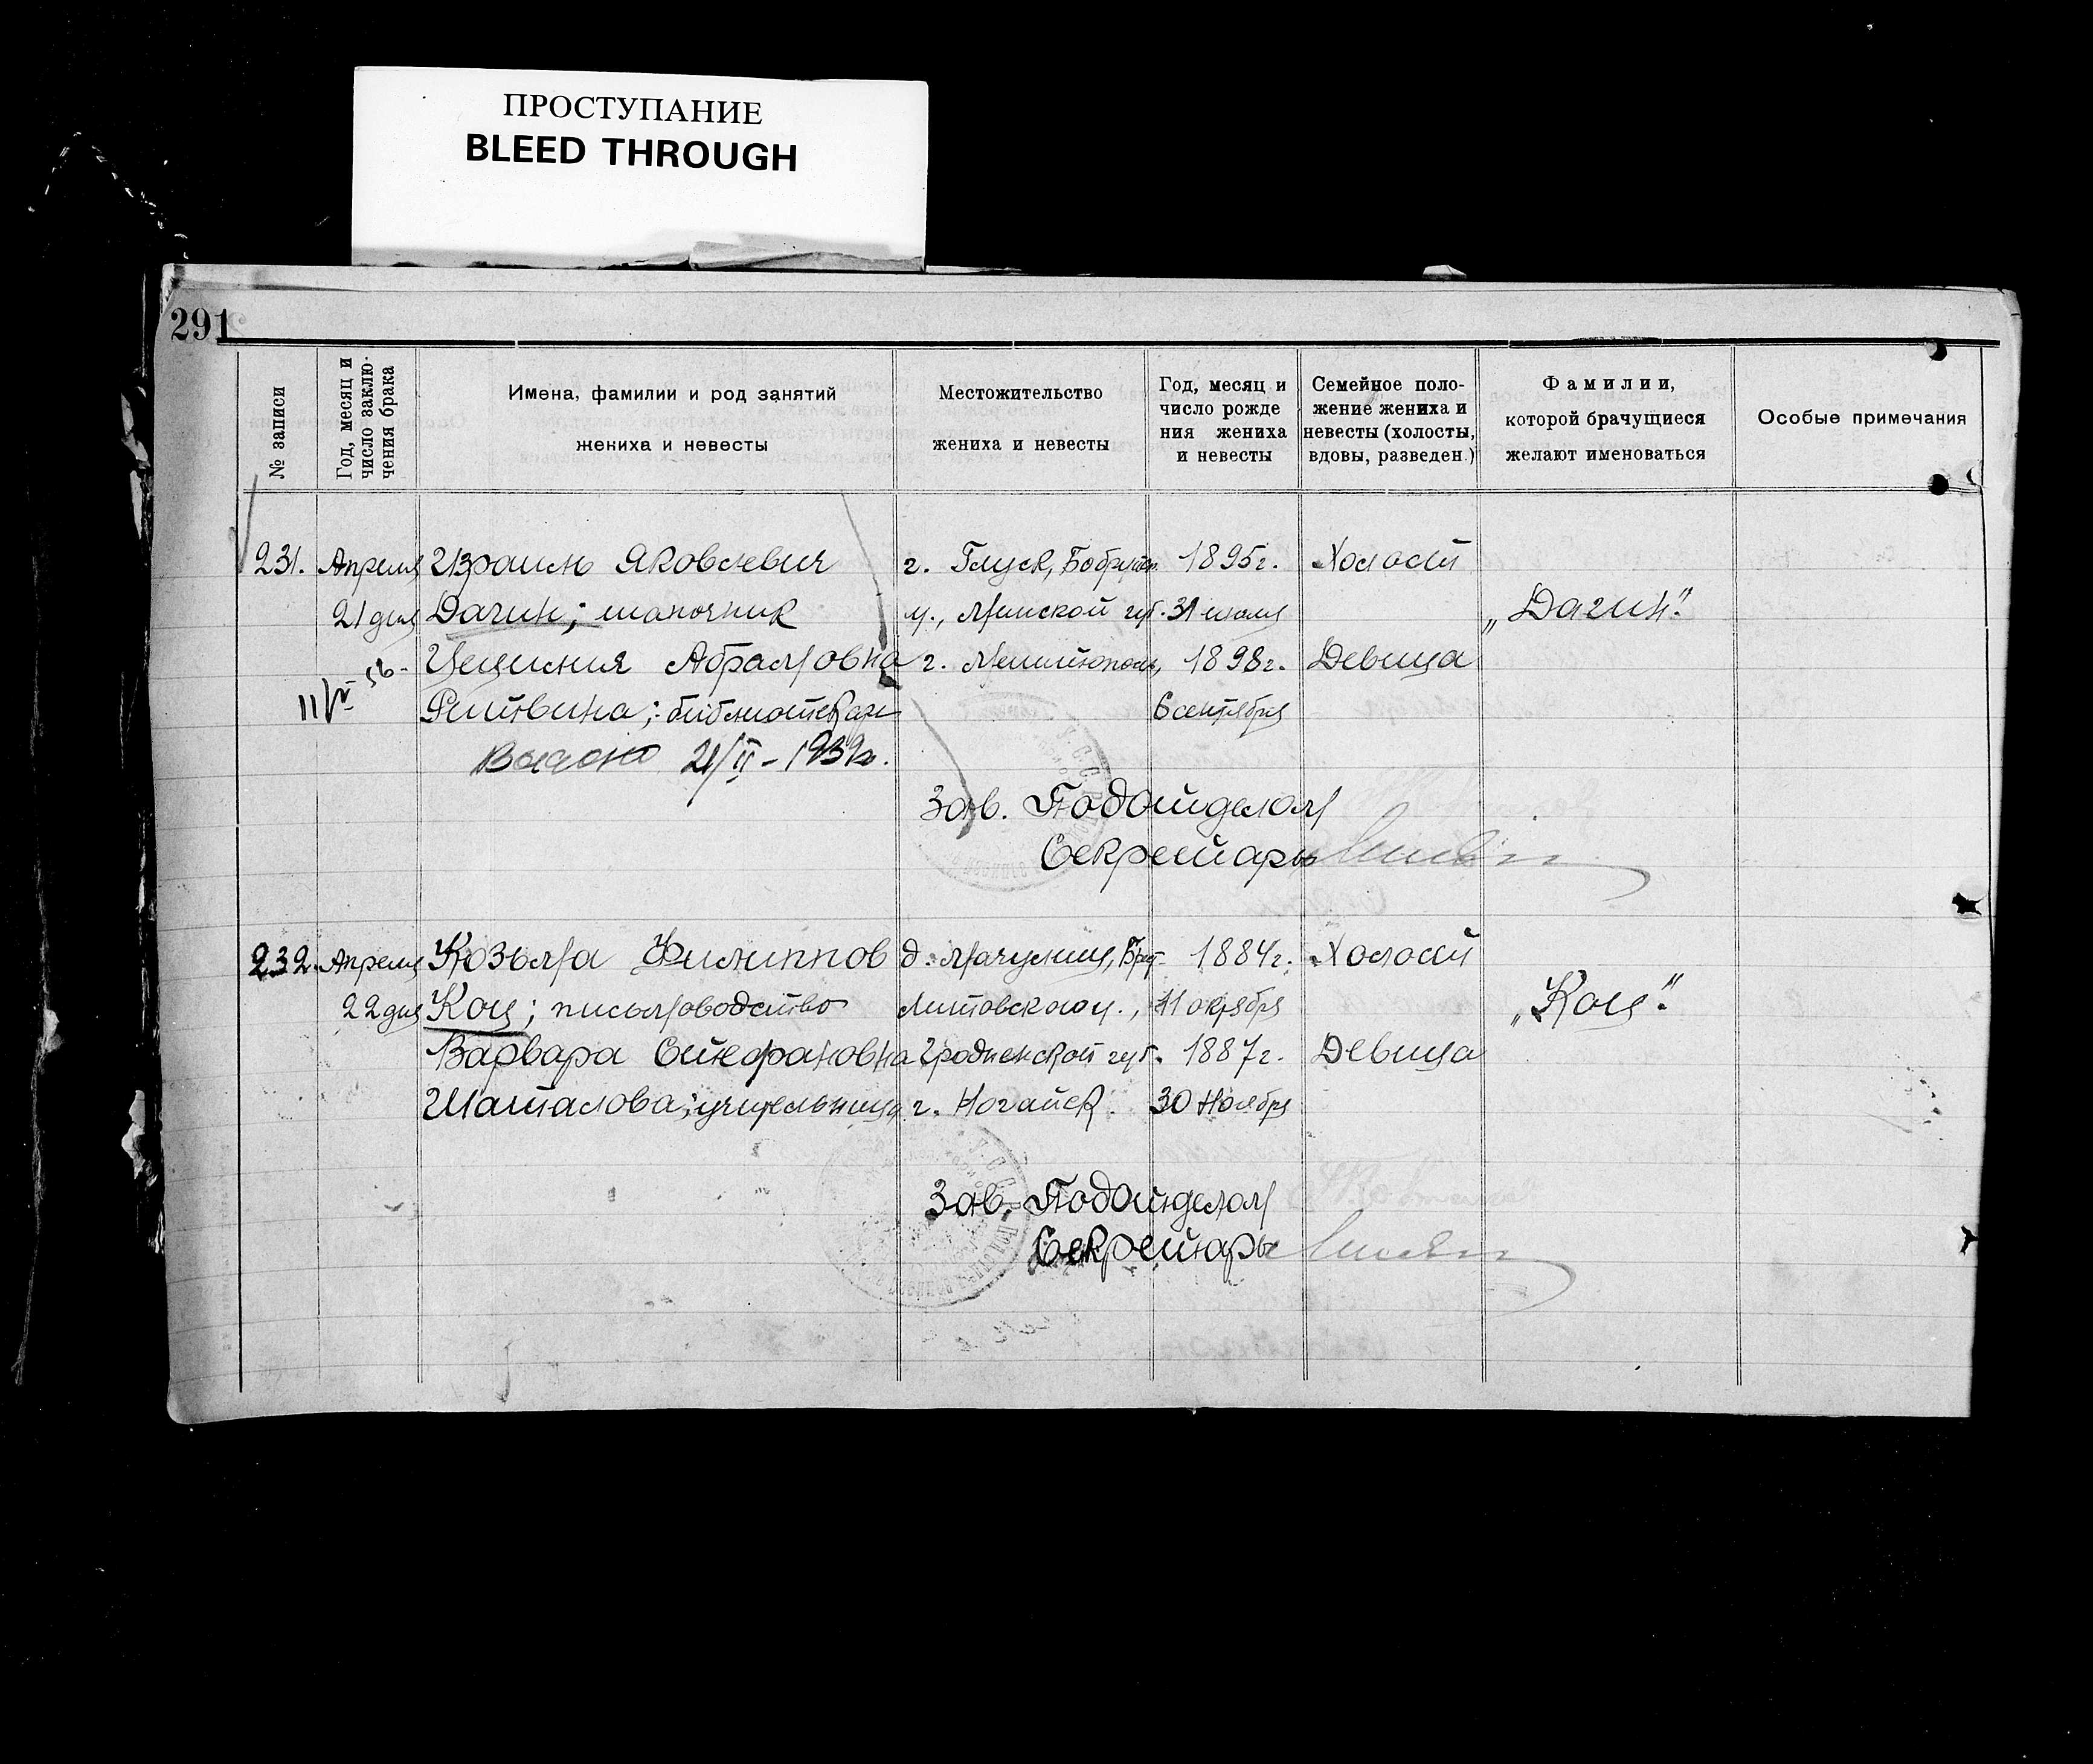 ПРОСТУПАНИЕ
BLEED THROUGH
291
№ записи
Год, месяц и
число заклю-
чения брака
Имена, фамилии и род занятий
жениха и невесты
Местожительство
жениха и невесты
Год, месяц и
число рожде
ния жениха
и невесты
Семейное поло-
жение жениха и
невесты (холосты,
вдовы, разведен.)
Фамилии,
которой брачущиеся
желают именоваться
Особые примечания
231. Апреля Израиль Яковлевич г. Глуск, Бобруйск. 1895г. Холост
21 дня Дагин; шапочник у., Минской губ. 31 июля „Дагин".
Цецилия Абрамовна г. Мелитополь, 1898г. Девица
Ритвина; библиотекарь 6 сентября
Выдано 21/II - 1939г.
Зав. Подотделом
Секретарь
232. Апреля Козьма Филиппов д. Мачулищ, Брест 1884г. Холост
22 дня Коц; письмоводство Литовского у., 11 октября „Коц".
Варвара Стефановна Гродненской губ. 1887г. Девица
Шаталова; учительница г. Ногайск. 30 Ноября
Зав. Подотделом
Секретарь